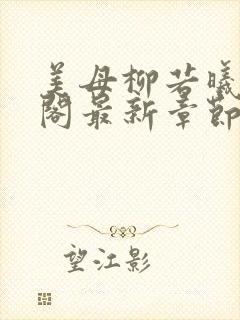 美母柳若曦
阁最新章節
望江影